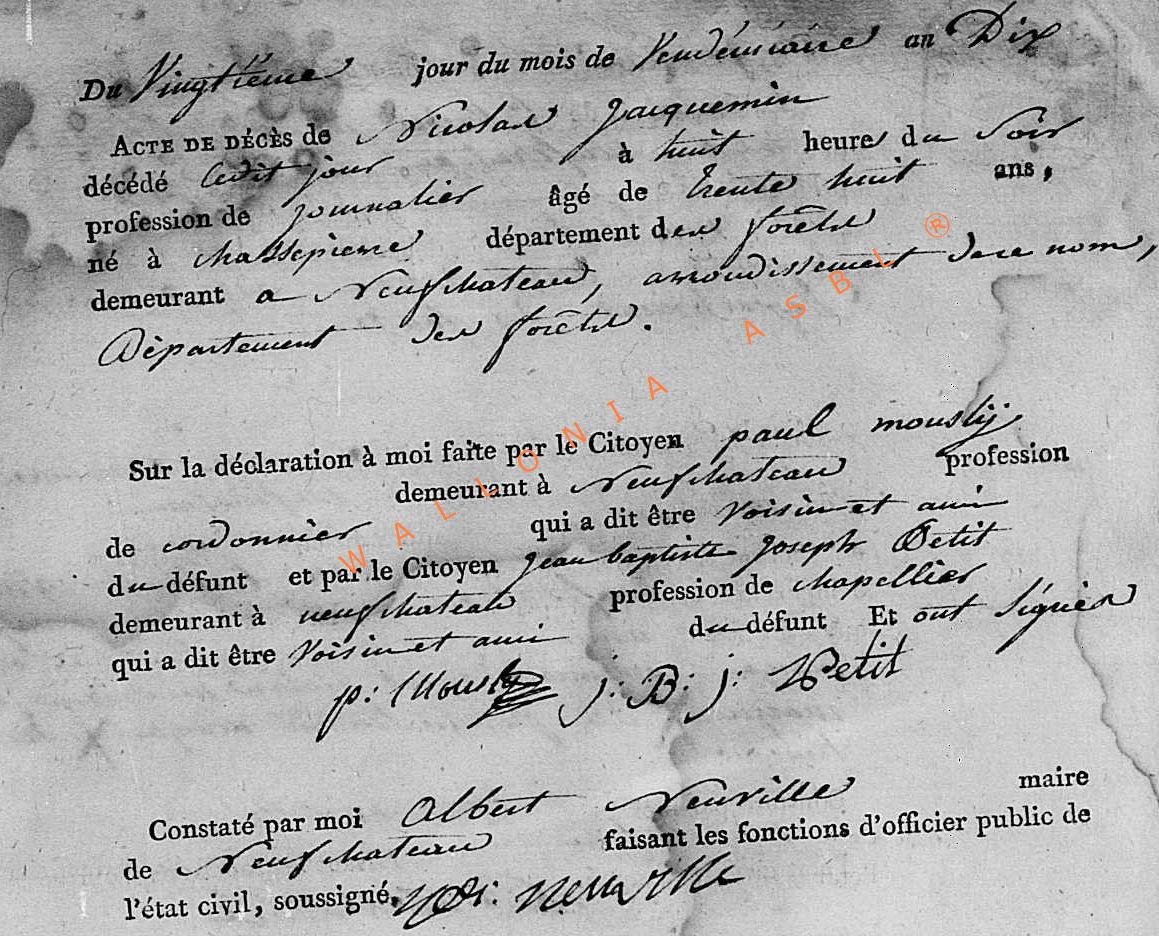 Du Vingtième jour du mois de Vendémiaire an Dix
ACTE DE DÉCÈS de Nicolas Jacquemin
décédé ledit jour à huit heures du Soir
profession de journalier âgé de trente huit ans,
né à chassepierre département des forêts
demeurant a Neufchateau, arrondissement de ce nom,
Département des forêts.
Sur la déclaration à moi faite par le Citoyen paul mouslij
demeurant à Neufchateau profession
de cordonnier qui a dit être Voisin et ami
du défunt et par le Citoyen jean baptiste joseph Petit
demeurant à neufchateau profession de chapellier
qui a dit être Voisin et ami du défunt Et ont signés
p: j: B: j: Petit
Constaté par moi Albert Neuville maire
de Neufchateau faisant les fonctions d'officier public de
l'état civil, soussigné. Neuville
WALLONIA ASBL ®